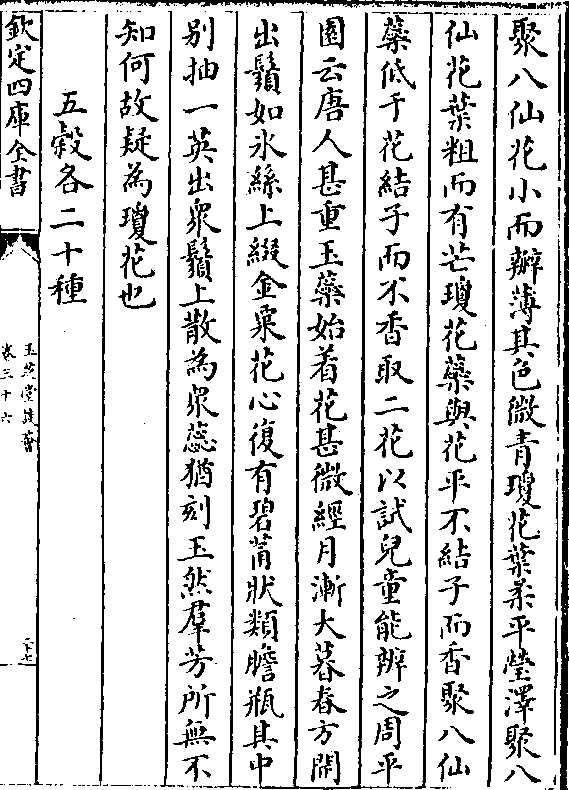 聚八仙花小而瓣薄其色微青瓊花葉柔平瑩澤聚八
仙花葉粗而有芒瓊花蘂與花平不結子而香聚八仙
蘂低于花結子而不香取二花以試兒童能辨之周平
園云唐人甚重玉蘂始着花甚微經月漸大暮春方開
出鬚如氷絲上綴金粟花心復有碧筩狀類膽瓶其中
别抽一英出衆鬚上散為衆蕊猶刻玉然羣芳所無不
知何故疑為瓊花也
五穀各二十種
欽定四庫全書
玉芝堂談薈
卷三十六
二十七